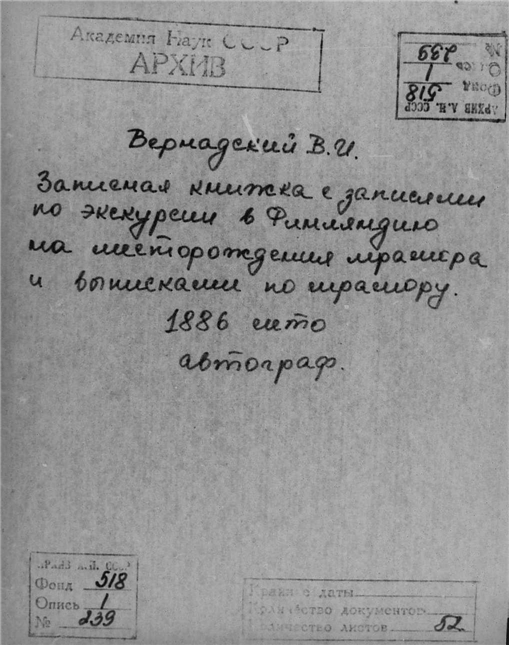 Академия Наук СССР
АРХИВ
АРХИВ А.Н. СССР
Фонд 518
Опись 1
№ 239
Вернадский В.И.
Записная книжка с записями
по экскурсии в Финляндию
на месторождения мрамора
и выписками по мрамору.
1886 лето
автограф.
АРХИВ А.Н. СССР
Фонд 518
Опись 1
№ 239
Крайние даты
Количество документов
Количество листов 52